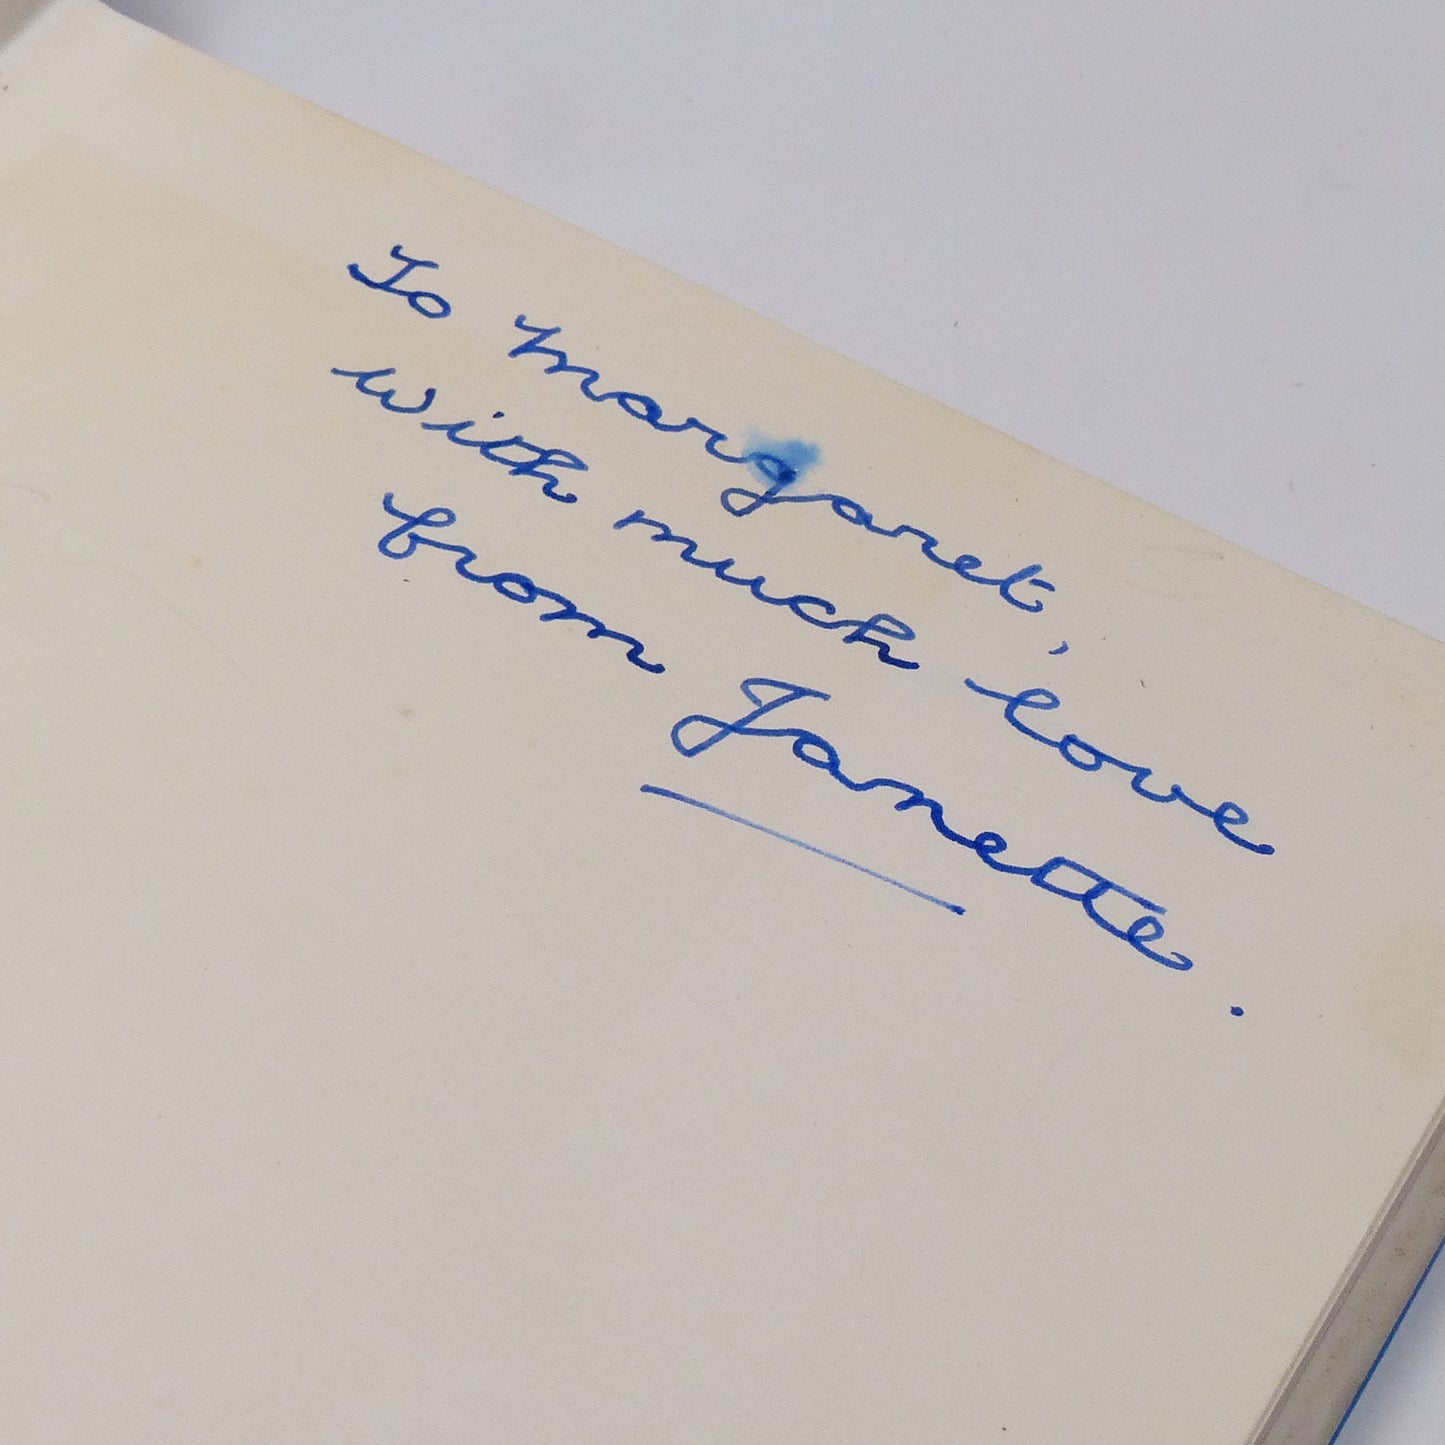 To Margaret,
with much love
from Janette.